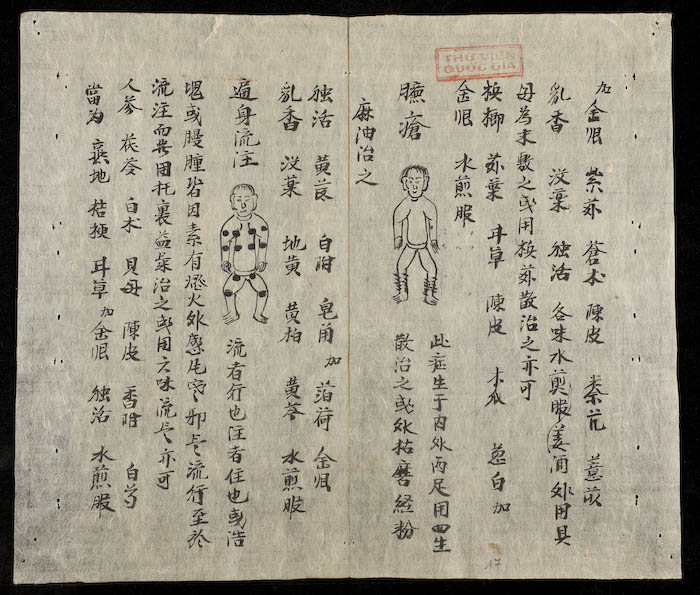 THƯ VIỆN
QUỐC GIA
加金艮 紫苏 苍术 陳皮 秦艽 薏苡
乳香 没藥 独活 各味水煎服 姜酒外用貝
母為末敷之或用槟苏散治之亦可
槟榔 苏葉 甘草 陳皮 木瓜 葱白 加
金艮 水煎服
臁瘡
此症生于内外両足用四生
散治之或外拈磨経粉
麻油治之
17
独活 黄芪 白附 皂角 加 荷 金艮
乳香 没藥 地黄 黄柏 黄芩 水煎服
遍身流注
流者行也注者住也或浩
塊或漫腫皆因素有痰火外感 邪 流行至於
流注而 用托裏益氣治之或用六味流气亦可
人參 茯苓 白术 貝母 陳皮 香附 白芍
當 熟地 桔梗 甘草 加金艮 独活 水煎服